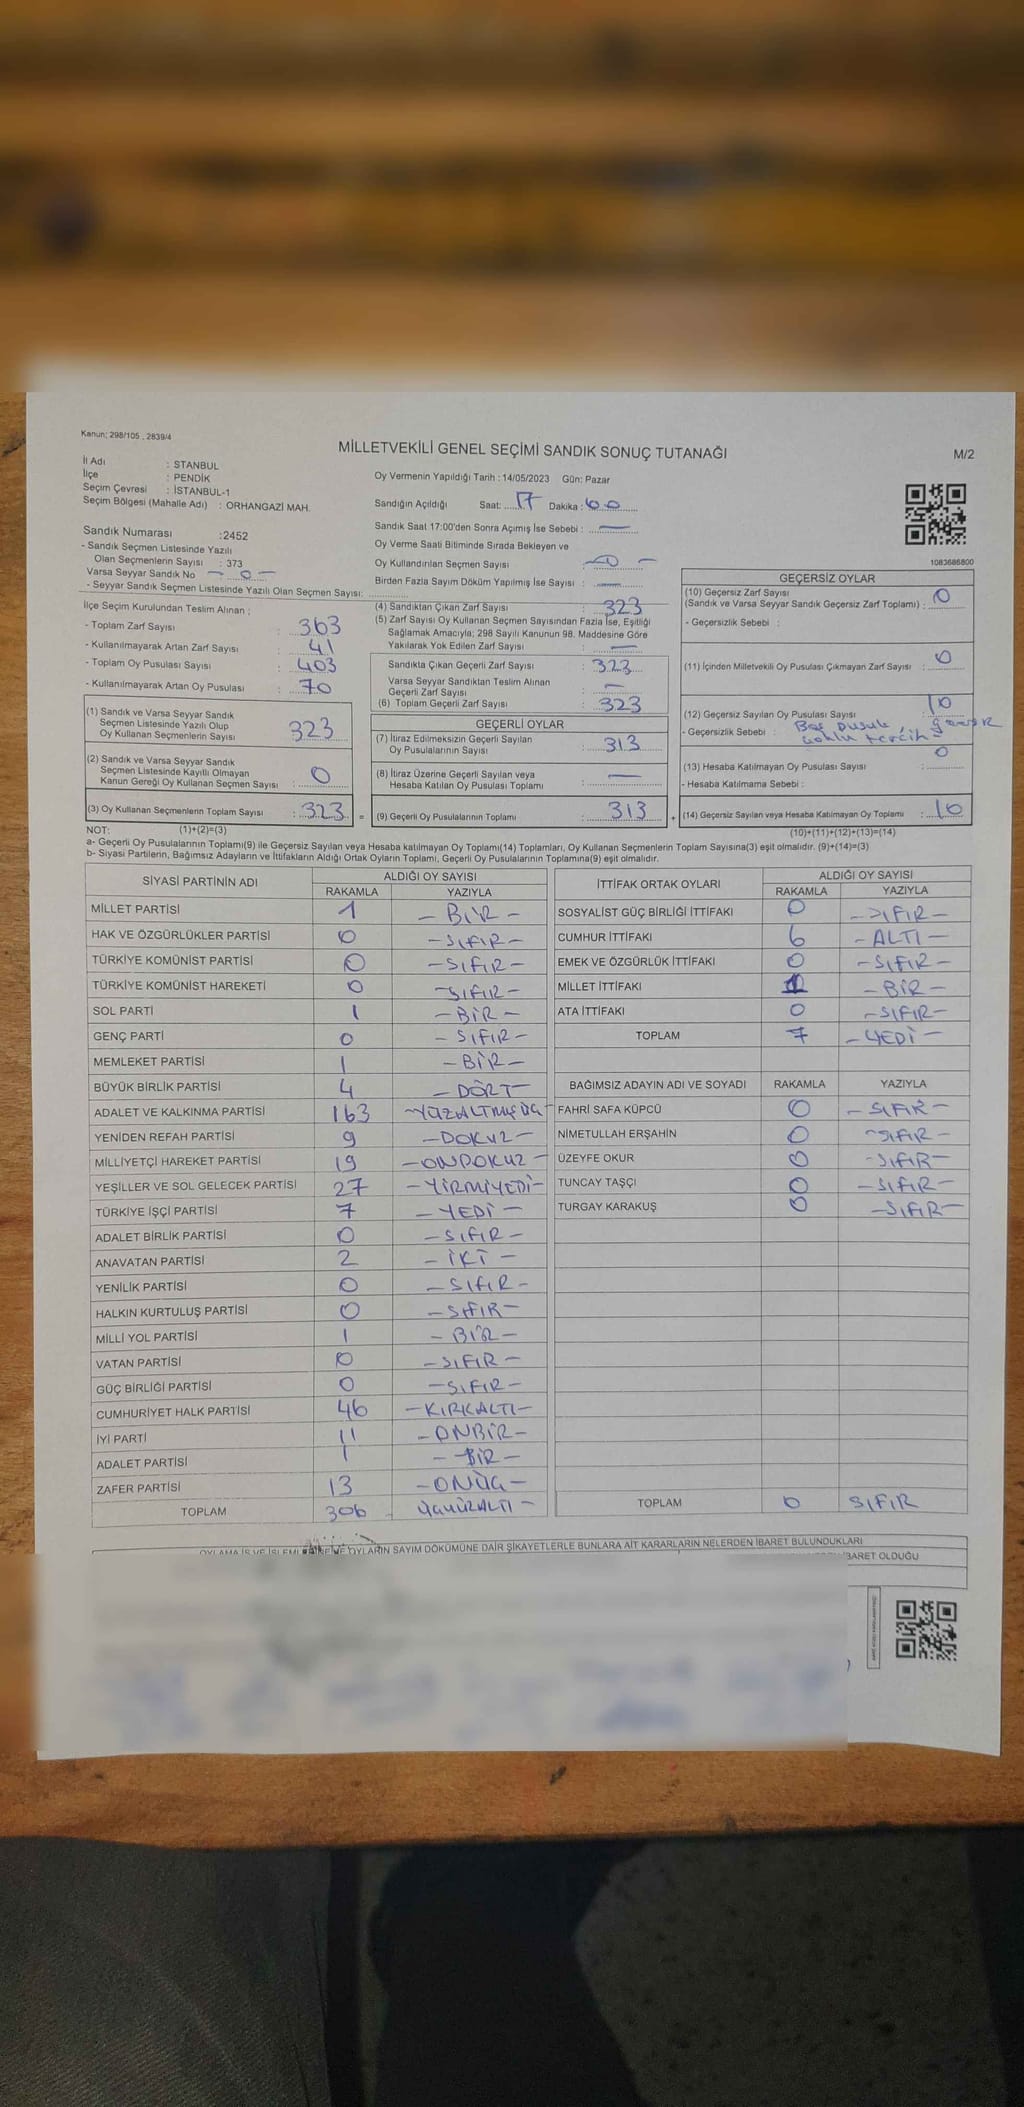 Kanun: 298/105 , 2839/4
MİLLETVEKİLİ GENEL SEÇİMİ SANDIK SONUÇ TUTANAĞI
M/2
İl Adı : STANBUL
İlçe : PENDİK
Seçim Çevresi : İSTANBUL-1
Seçim Bölgesi (Mahalle Adı) : ORHANGAZİ MAH.
Oy Vermenin Yapıldığı Tarih : 14/05/2023 Gün: Pazar
Sandığın Açıldığı Saat: 17 Dakika: 00
Sandık Saat 17:00'den Sonra Açımış İse Sebebi : —
Oy Verme Saati Bitiminde Sırada Bekleyen ve
Oy Kullandırılan Seçmen Sayısı : — 0 —
Birden Fazla Sayım Döküm Yapılmış İse Sayısı : —
1083686800
Sandık Numarası :2452
- Sandık Seçmen Listesinde Yazılı
Olan Seçmenlerin Sayısı : 373
Varsa Seyyar Sandık No — 0 —
- Seyyar Sandık Seçmen Listesinde Yazılı Olan Seçmen Sayısı:
İlçe Seçim Kurulundan Teslim Alınan ;
- Toplam Zarf Sayısı : 363
- Kullanılmayarak Artan Zarf Sayısı : 41
- Toplam Oy Pusulası Sayısı : 403
- Kullanılmayarak Artan Oy Pusulası : 70
(1) Sandık ve Varsa Seyyar Sandık
Seçmen Listesinde Yazılı Olup
Oy Kullanan Seçmenlerin Sayısı : 323
(2) Sandık ve Varsa Seyyar Sandık
Seçmen Listesinde Kayıtlı Olmayan
Kanun Gereği Oy Kullanan Seçmen Sayısı : 0
(3) Oy Kullanan Seçmenlerin Toplam Sayısı : 323 =
(4) Sandıktan Çıkan Zarf Sayısı : 323
(5) Zarf Sayısı Oy Kullanan Seçmen Sayısından Fazla İse, Eşitliği
Sağlamak Amacıyla; 298 Sayılı Kanunun 98. Maddesine Göre
Yakılarak Yok Edilen Zarf Sayısı : —
Sandıkta Çıkan Geçerli Zarf Sayısı : 323
Varsa Seyyar Sandıktan Teslim Alınan
Geçerli Zarf Sayısı : —
(6) Toplam Geçerli Zarf Sayısı : 323
GEÇERLİ OYLAR
(7) İtiraz Edilmeksizin Geçerli Sayılan
Oy Pusulalarının Sayısı : 313
(8) İtiraz Üzerine Geçerli Sayılan veya
Hesaba Katılan Oy Pusulası Toplamı : —
(9) Geçerli Oy Pusulalarının Toplamı : 313 +
GEÇERSİZ OYLAR
(10) Geçersiz Zarf Sayısı
(Sandık ve Varsa Seyyar Sandık Geçersiz Zarf Toplamı) : 0
- Geçersizlik Sebebi :
(11) İçinden Milletvekili Oy Pusulası Çıkmayan Zarf Sayısı : 0
(12) Geçersiz Sayılan Oy Pusulası Sayısı : 10
- Geçersizlik Sebebi : Boş Pusula,
çoklu tercih
(13) Hesaba Katılmayan Oy Pusulası Sayısı : 0
- Hesaba Katılmama Sebebi :
(14) Geçersiz Sayılan veya Hesaba Katılmayan Oy Toplamı : 10
NOT: (1)+(2)=(3)
(10)+(11)+(12)+(13)=(14)
a- Geçerli Oy Pusulalarının Toplamı(9) ile Geçersiz Sayılan veya Hesaba katılmayan Oy Toplamı(14) Toplamları, Oy Kullanan Seçmenlerin Toplam Sayısına(3) eşit olmalıdır. (9)+(14)=(3)
b- Siyasi Partilerin, Bağımsız Adayların ve İttifakların Aldığı Ortak Oyların Toplamı, Geçerli Oy Pusulalarının Toplamına(9) eşit olmalıdır.
SİYASİ PARTİNİN ADI ALDIĞI OY SAYISI
RAKAMLA YAZIYLA
MİLLET PARTİSİ 1 — BİR —
HAK VE ÖZGÜRLÜKLER PARTİSİ 0 — SIFIR —
TÜRKİYE KOMÜNİST PARTİSİ 0 — SIFIR —
TÜRKİYE KOMÜNİST HAREKETİ 0 — SIFIR —
SOL PARTİ 1 — BİR —
GENÇ PARTİ 0 — SIFIR —
MEMLEKET PARTİSİ 1 — BİR —
BÜYÜK BİRLİK PARTİSİ 4 — DÖRT —
ADALET VE KALKINMA PARTİSİ 163 — YÜZALTMIŞÜÇ —
YENİDEN REFAH PARTİSİ 9 — DOKUZ —
MİLLİYETÇİ HAREKET PARTİSİ 19 — ONDOKUZ —
YEŞİLLER VE SOL GELECEK PARTİSİ 27 — YİRMİYEDİ —
TÜRKİYE İŞÇİ PARTİSİ 7 — YEDİ —
ADALET BİRLİK PARTİSİ 0 — SIFIR —
ANAVATAN PARTİSİ 2 — İKİ —
YENİLİK PARTİSİ 0 — SIFIR —
HALKIN KURTULUŞ PARTİSİ 0 — SIFIR —
MİLLİ YOL PARTİSİ 1 — BİR —
VATAN PARTİSİ 0 — SIFIR —
GÜÇ BİRLİĞİ PARTİSİ 0 — SIFIR —
CUMHURİYET HALK PARTİSİ 46 — KIRKALTI —
İYİ PARTİ 11 — ONBİR —
ADALET PARTİSİ 1 — BİR —
ZAFER PARTİSİ 13 — ONÜÇ —
TOPLAM 306 - ÜÇYÜZALTI —
İTTİFAK ORTAK OYLARI ALDIĞI OY SAYISI
RAKAMLA YAZIYLA
SOSYALİST GÜÇ BİRLİĞİ İTTİFAKI 0 — SIFIR —
CUMHUR İTTİFAKI 6 — ALTI —
EMEK VE ÖZGÜRLÜK İTTİFAKI 0 — SIFIR —
MİLLET İTTİFAKI 1 — BİR —
ATA İTTİFAKI 0 — SIFIR —
TOPLAM 7 — YEDİ —
BAĞIMSIZ ADAYIN ADI VE SOYADI RAKAMLA YAZIYLA
FAHRİ SAFA KÜPCÜ 0 — SIFIR —
NİMETULLAH ERŞAHİN 0 — SIFIR —
ÜZEYFE OKUR 0 — SIFIR —
TUNCAY TAŞÇI 0 — SIFIR —
TURGAY KARAKUŞ 0 — SIFIR —
TOPLAM 0 SIFIR
OYLAMA İŞ VE İŞLEMLERİNE VE OYLARIN SAYIM DÖKÜMÜNE DAİR ŞİKAYETLERLE BUNLARA AİT KARARLARIN NELERDEN İBARET BULUNDUKLARI
İBARET OLDUĞU